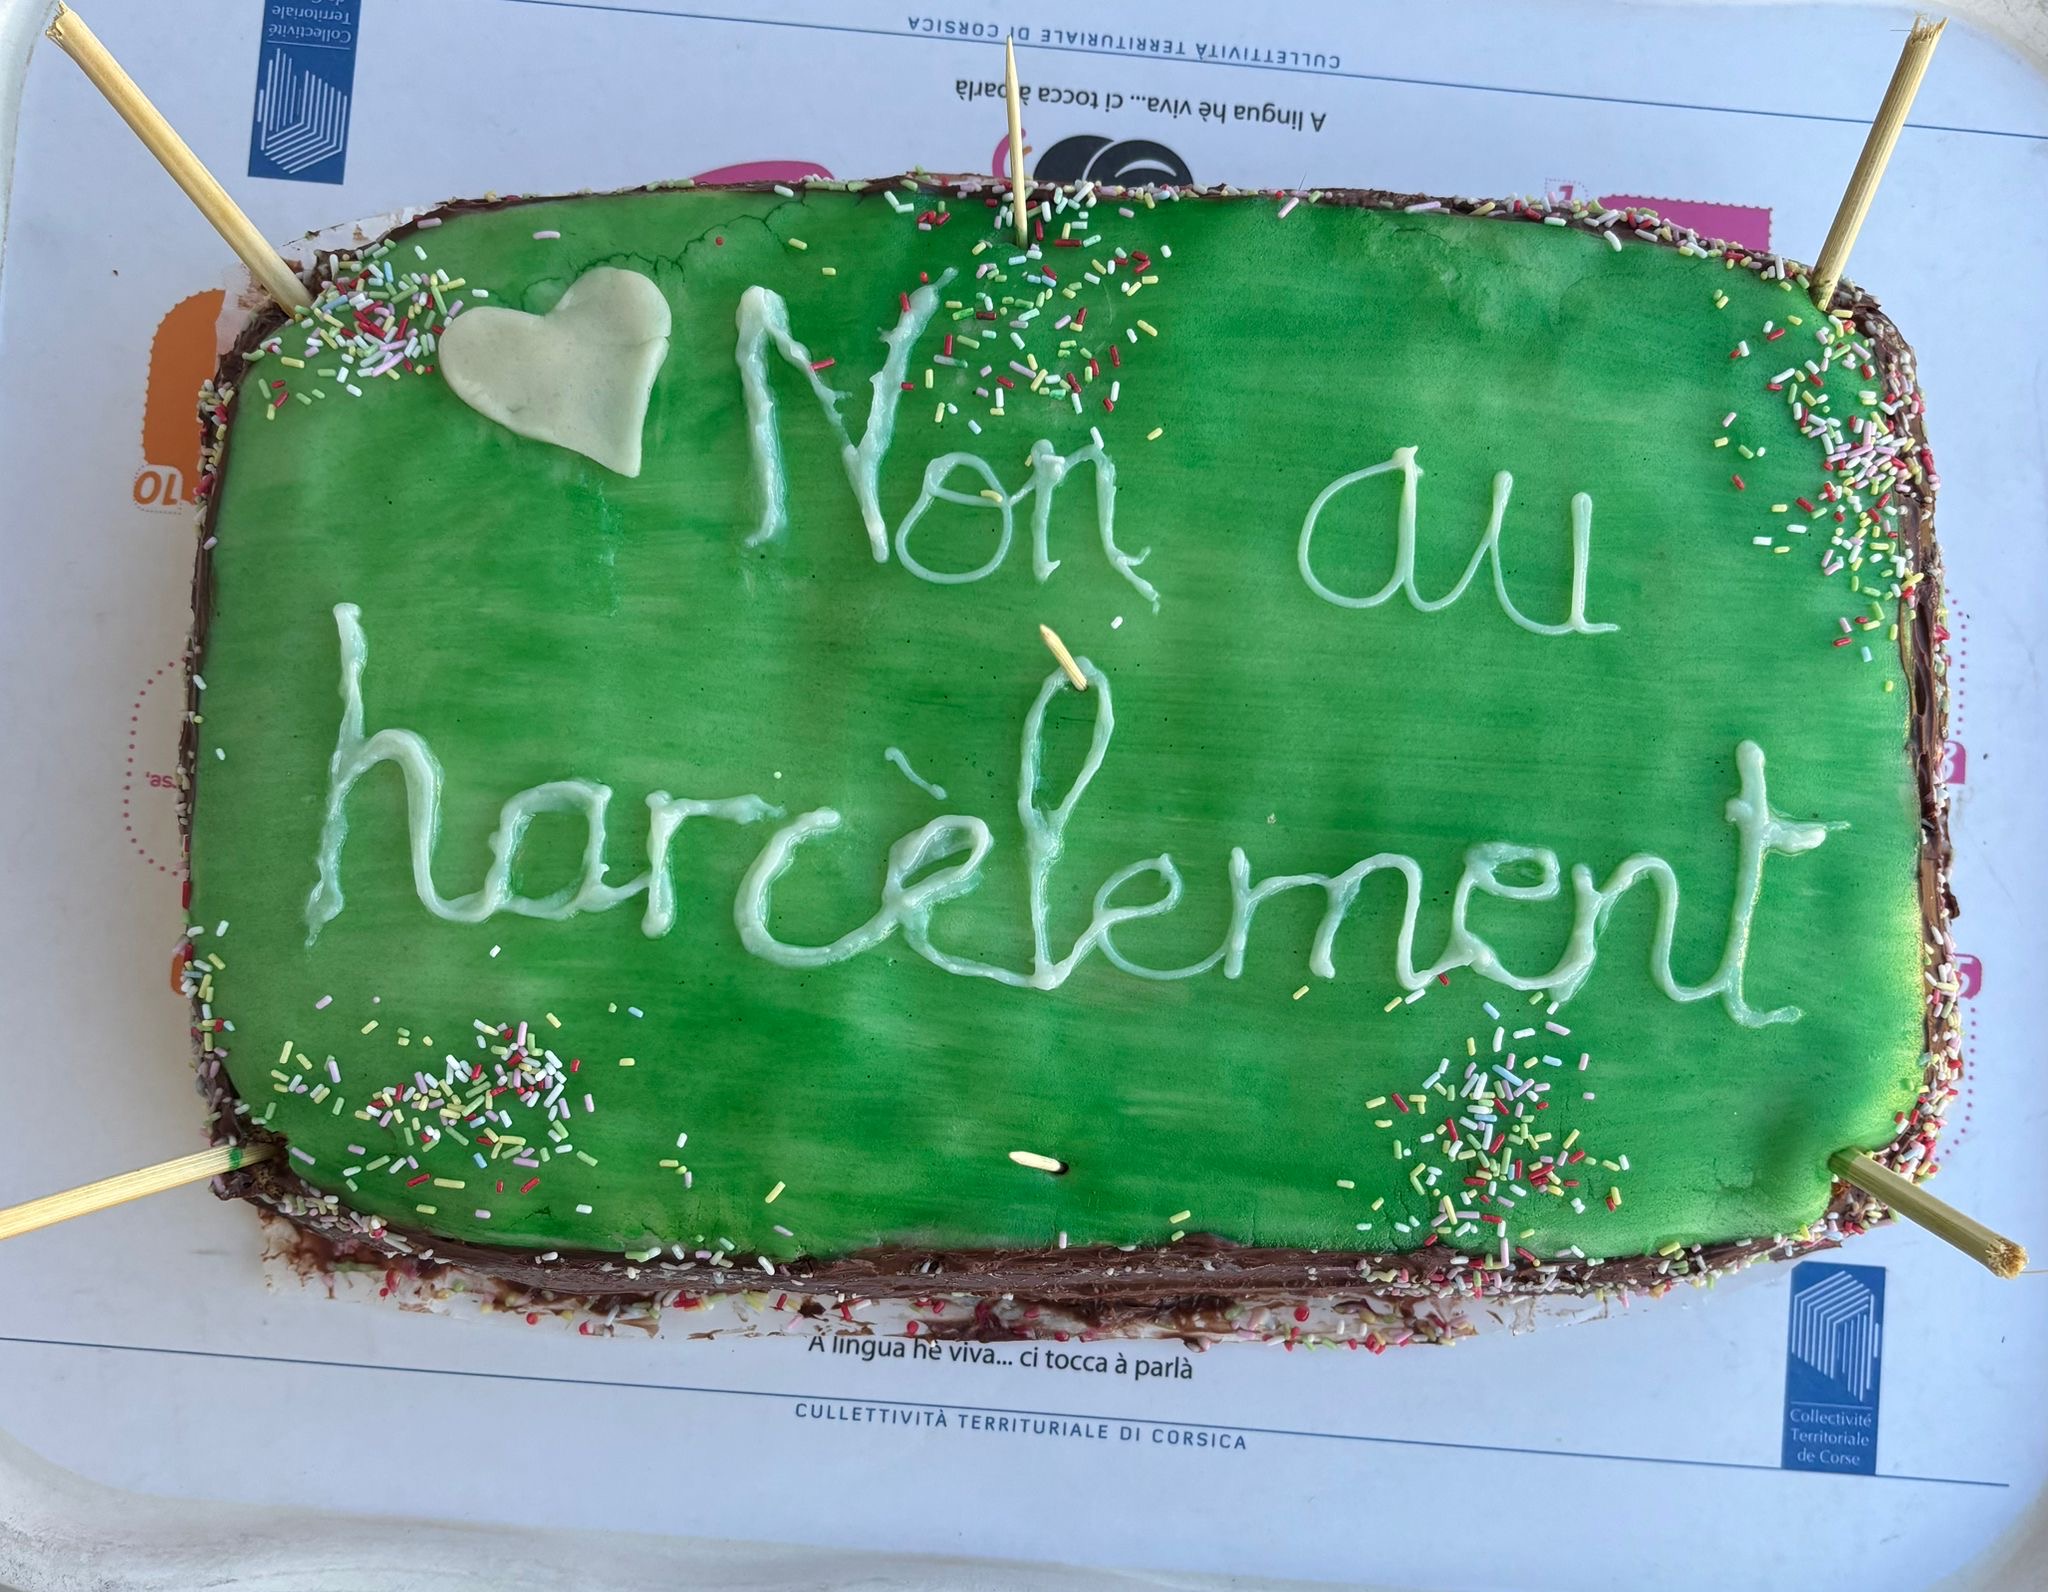 Collectivité
Territoriale
CULLETTIVITÀ TERRITURIALE DI CORSICA
A lingua hè viva... ci tocca à parlà
1
Non au
10
harcèlement
8
5
A lingua hè viva... ci tocca à parlà
CULLETTIVITÀ TERRITURIALE DI CORSICA
Collectivité
Territoriale
de Corse